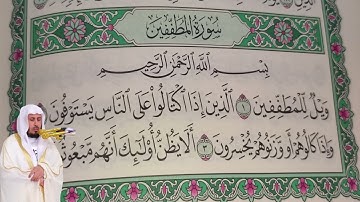 سُورَةُ الْمُطَفِّفِينَ
بِسْمِ اللَّهِ الرَّحْمَٰنِ الرَّحِيمِ
وَيْلٌ لِّلْمُطَفِّفِينَ ١ الَّذِينَ إِذَا اكْتَالُوا عَلَى النَّاسِ يَسْتَوْفُونَ
وَإِذَا كَالُوهُمْ أَو وَّزَنُوهُمْ يُخْسِرُونَ ٣ أَلَا يَظُنُّ أُولَٰئِكَ أَنَّهُم مَّبْعُوثُونَ